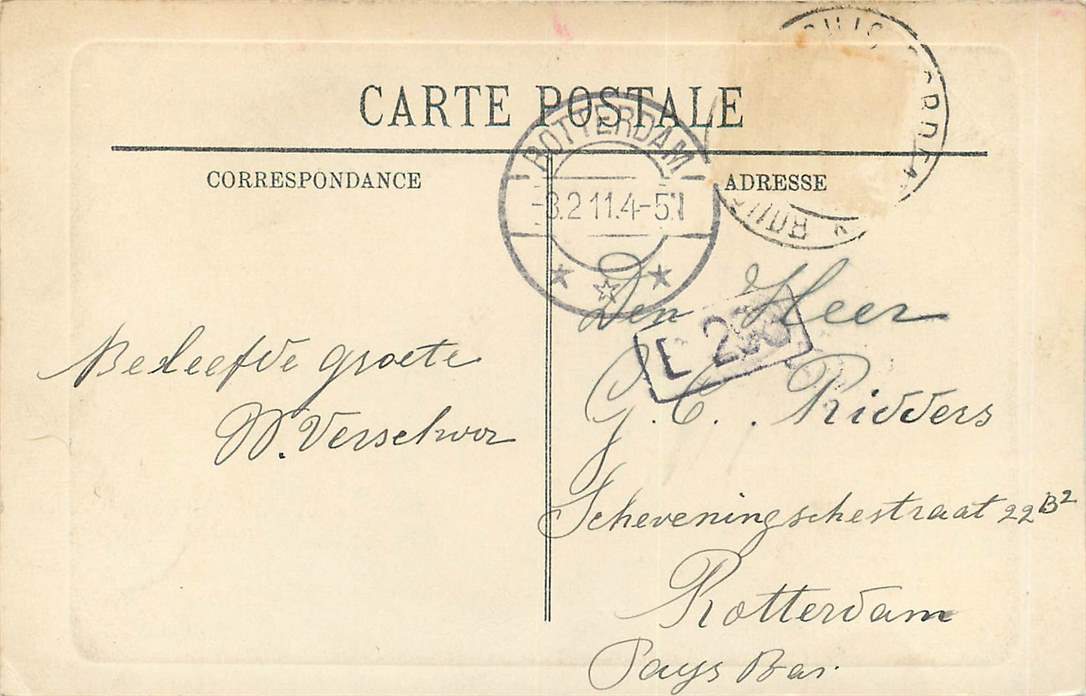 CARTE POSTALE
CORRESPONDANCE
ADRESSE
ROTTERDAM
-8.2 11.4-5V
Beleefde groete
W. Verschoor
Den Heer
G. C. Ridders
Scheveningschestraat 22 B2
Rotterdam
Pays Bas
L 236